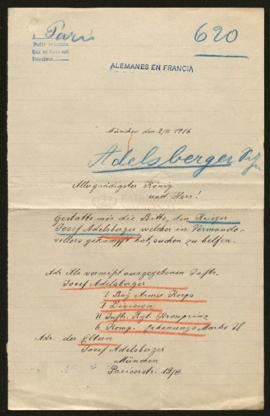 Pari
620
ALEMANES EN FRANCIA
München den 2/II 1916
Adelsberger
Allergnädigster König
und Herr!
Gestatte mir die Bitte, den
Josef Adelsberger welcher in Vermando-
villers gekämpft hat, suchen zu helfen.
Adr. Als vermißt ausgegebenen Inftr.
Josef Adelsberger
I Bay Armee Korps
I Division
II Inftr. Rgt. Kronprinz
6 Komp. Erkennungs Marke
Adr. der Eltern
Josef Adelsberger
München